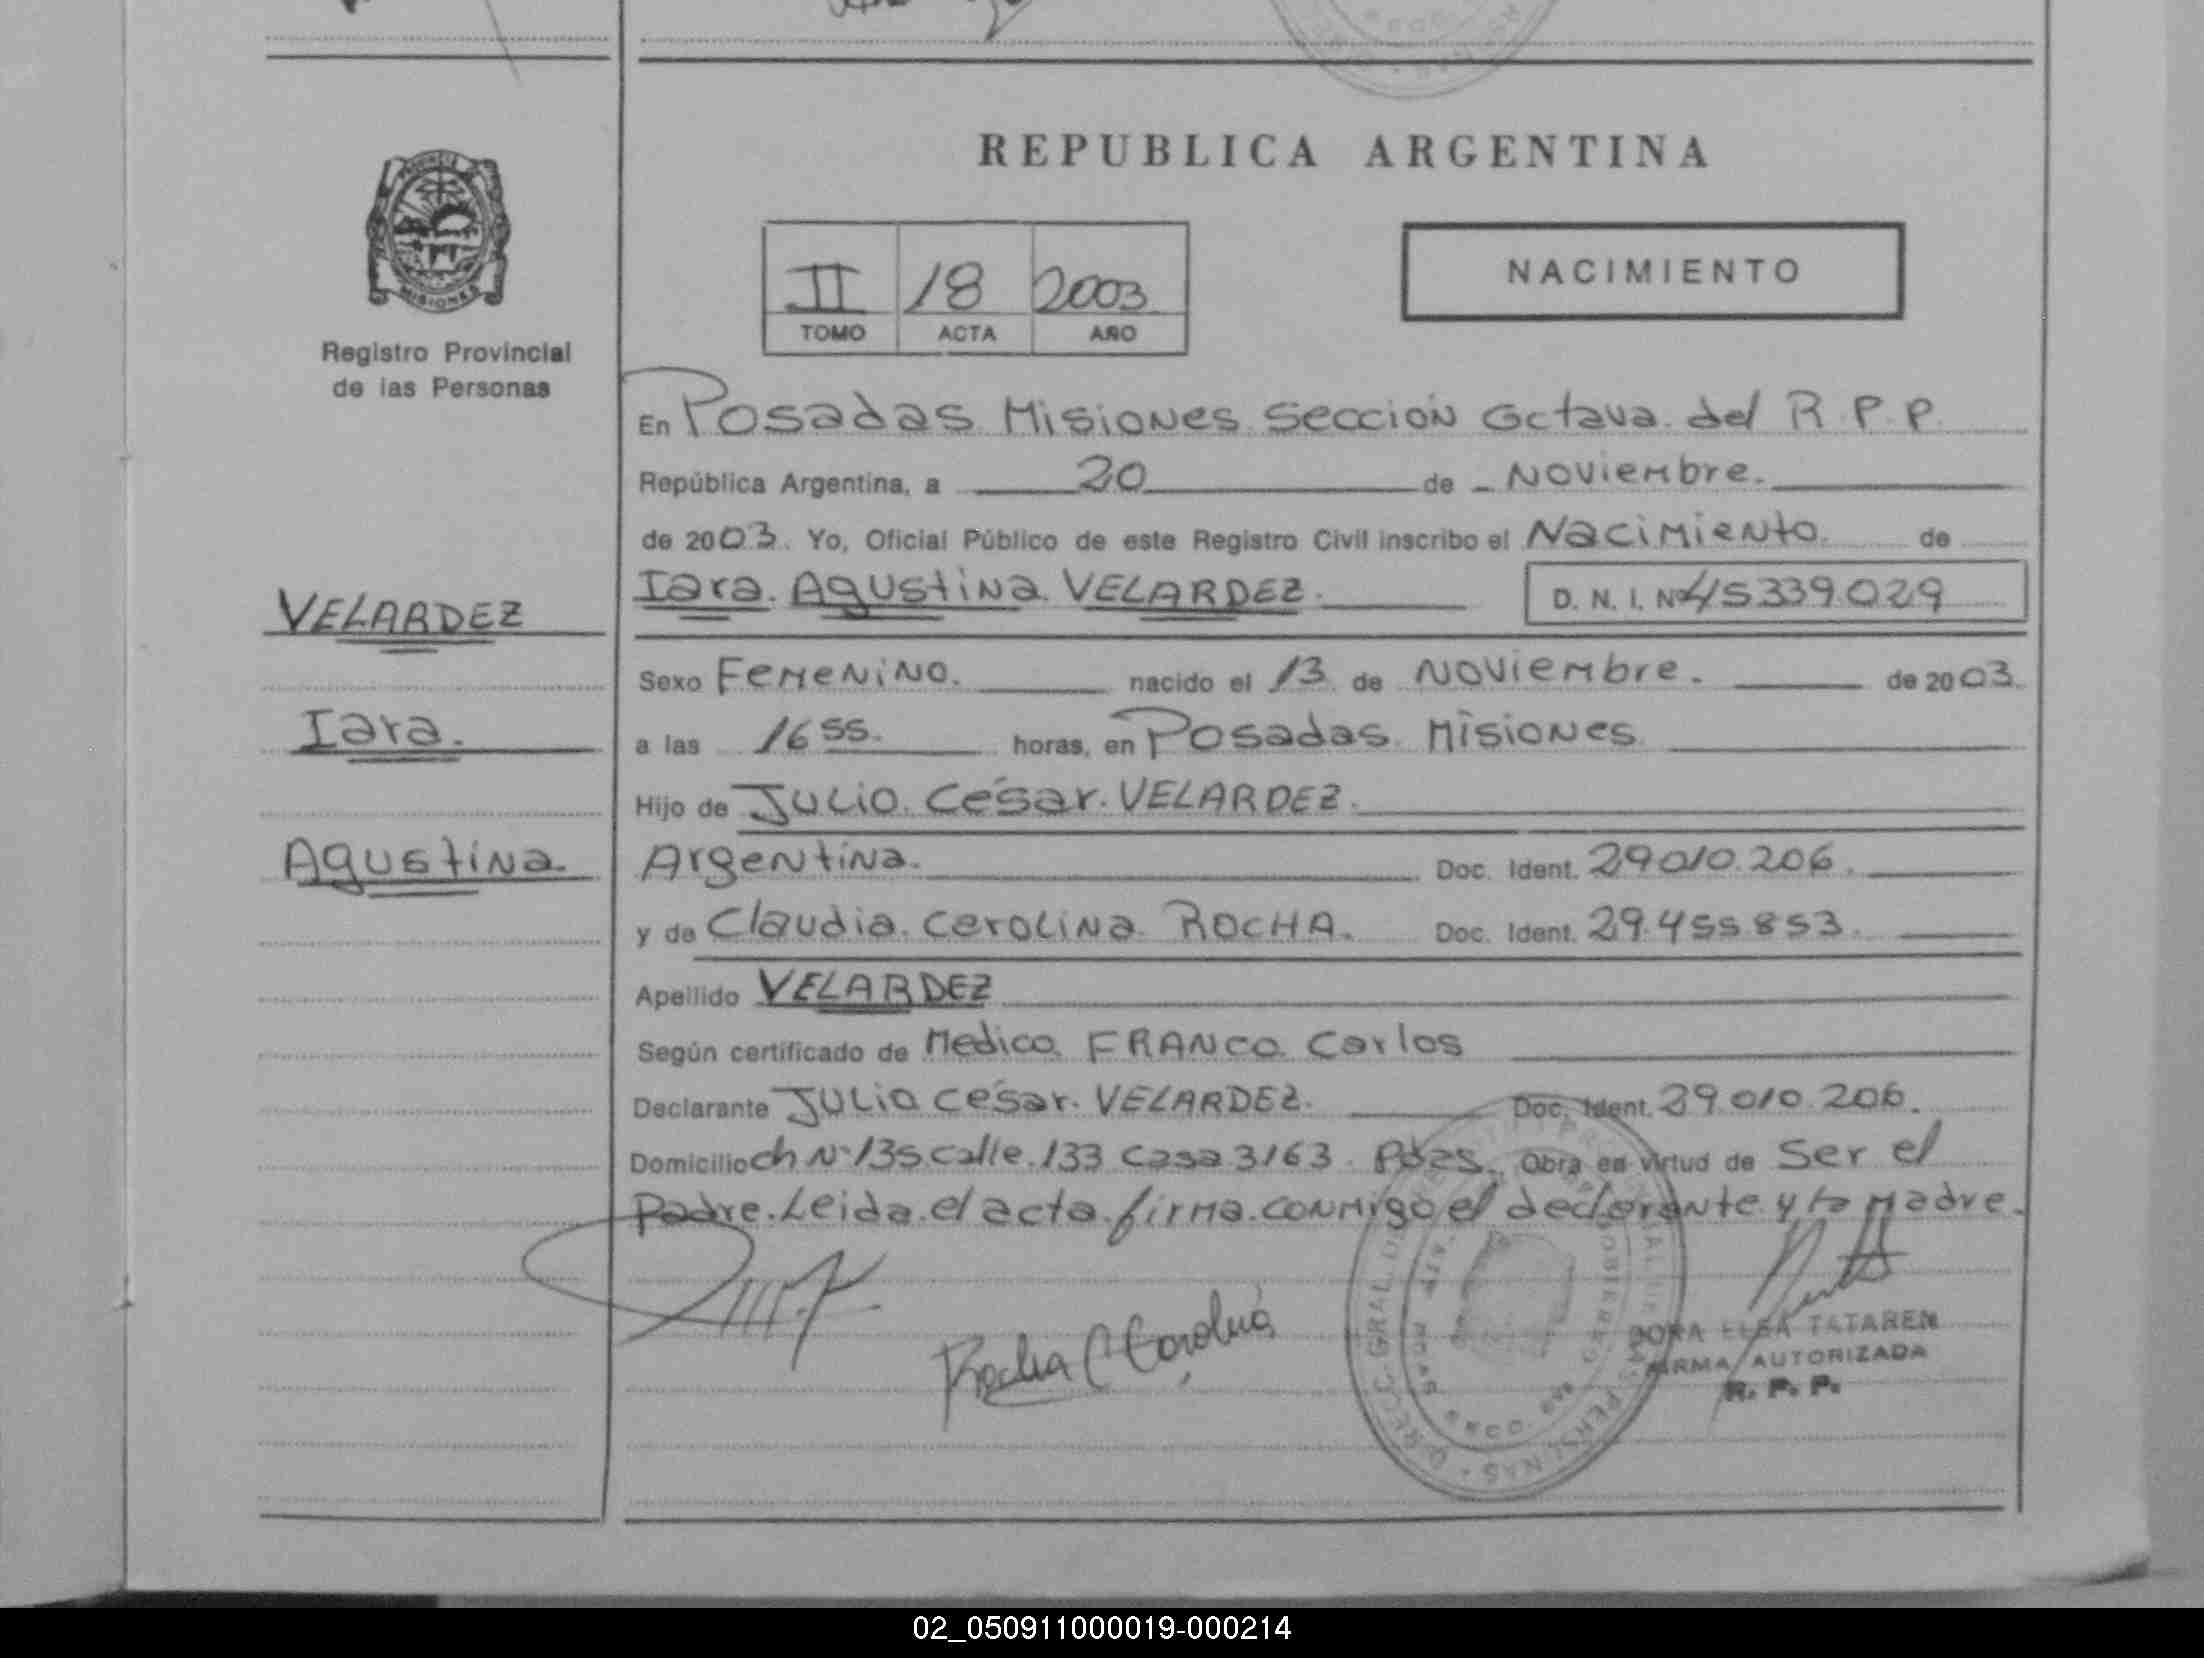 REPUBLICA ARGENTINA
MISIONES
Registro Provincial
de las Personas
II 18 2003
TOMO ACTA AÑO
NACIMIENTO
En Posadas. Misiones. Sección Octava. del R. P. P.
República Argentina, a 20 de Noviembre.
de 2003. Yo, Oficial Público de este Registro Civil inscribo el Nacimiento. de
Iara. Agustina. VELARDEZ. D. N. I. Nº 45339.029
VELARDEZ
Iara.
Agustina.
Sexo Femenino. nacido el 13 de Noviembre. de 2003.
a las 16 55. horas, en Posadas. Misiones.
Hijo de Julio. César. VELARDEZ.
Argentina. Doc. Ident. 29.010.206.
y de Claudia. Carolina. ROCHA. Doc. Ident. 29.455.853.
Apellido VELARDEZ
Según certificado de Medico. FRANCO. Carlos
Declarante Julio César. VELARDEZ. Doc. Ident. 29.010.206.
Domicilio ch Nº 135. calle. 133 casa 3163. Pdas. Obra en virtud de Ser el
Padre. Leida. el acta. firma. conmigo el declarante y la Madre.
Rocha C Carolina
DORA ELSA TATAREN
FIRMA AUTORIZADA
R. P. P.
02_050911000019-000214